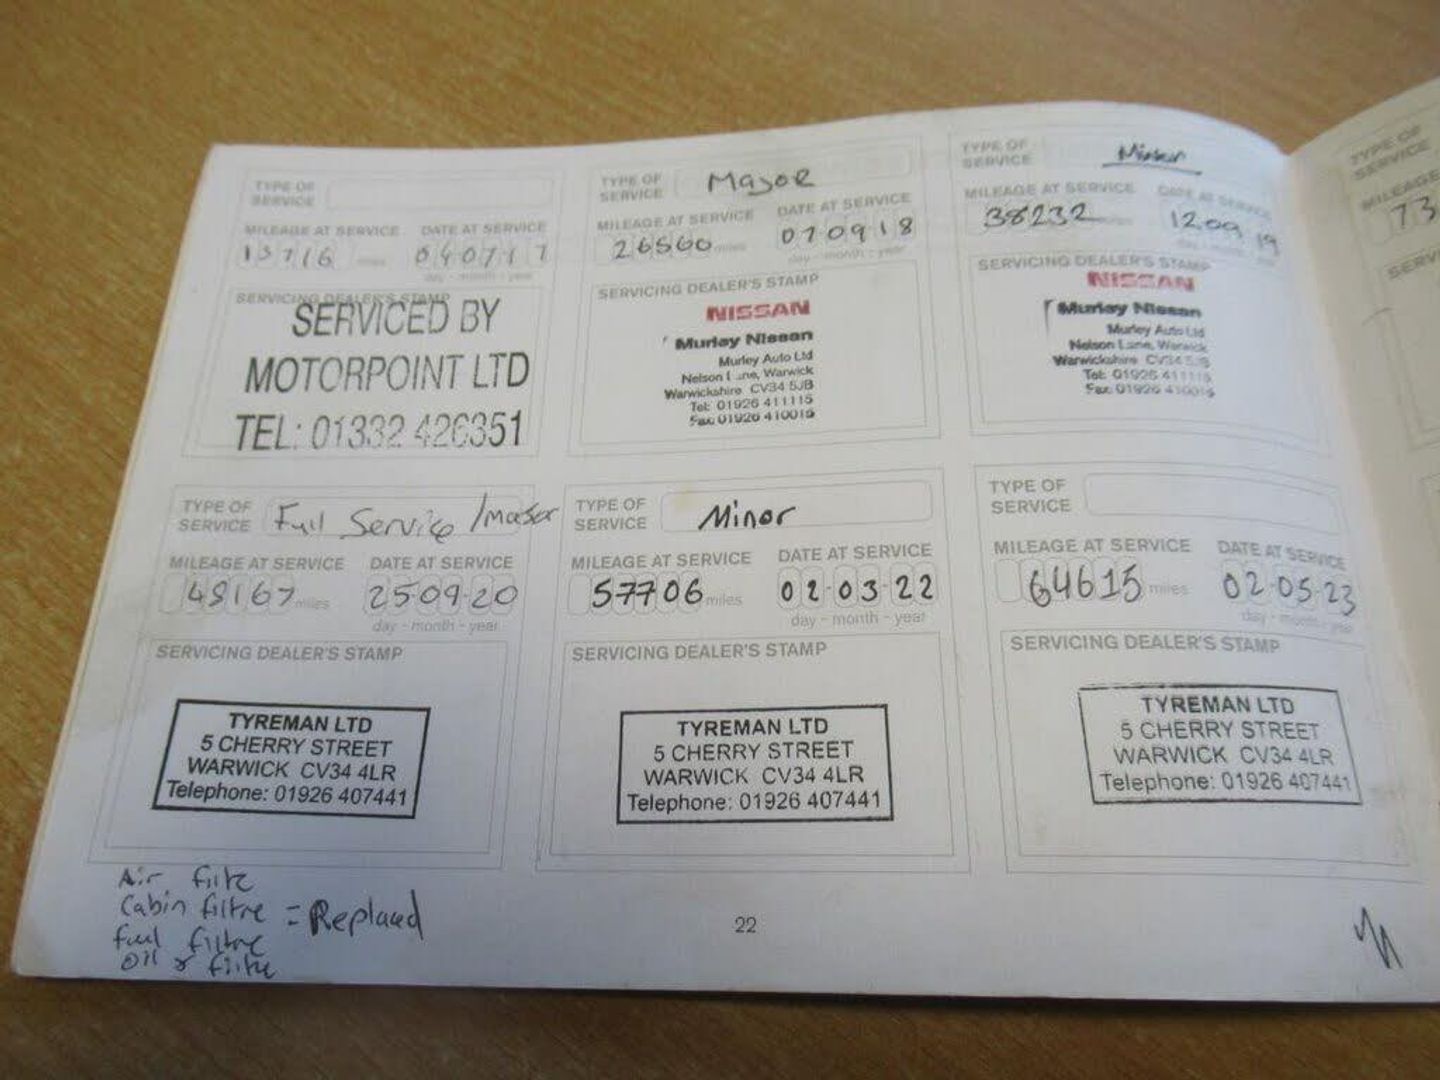 TYPE OF
SERVICE
MILEAGE AT SERVICE DATE AT SERVICE
13716 miles 040717
day - month - year
SERVICING DEALER'S STAMP
SERVICED BY
MOTORPOINT LTD
TEL: 01332 426351
TYPE OF
SERVICE Major
MILEAGE AT SERVICE DATE AT SERVICE
26560 miles 070918
day - month - year
SERVICING DEALER'S STAMP
NISSAN
Murley Nissan
Murley Auto Ltd
Nelson Lane, Warwick
Warwickshire CV34 5JB
Tel: 01926 411115
Fax: 01926 410015
TYPE OF
SERVICE Minor
MILEAGE AT SERVICE DATE AT SERVICE
38232 miles 12 09 19
day - month - year
SERVICING DEALER'S STAMP
NISSAN
Murley Nissan
Murley Auto Ltd
Nelson Lane, Warwick
Warwickshire CV34 5JB
Tel: 01926 411115
Fax: 01926 410015
TYPE OF
SERVICE Full Service /major
MILEAGE AT SERVICE DATE AT SERVICE
48167 miles 250920
day - month - year
SERVICING DEALER'S STAMP
TYREMAN LTD
5 CHERRY STREET
WARWICK CV34 4LR
Telephone: 01926 407441
TYPE OF
SERVICE Minor
MILEAGE AT SERVICE DATE AT SERVICE
57706 miles 02-03-22
day - month - year
SERVICING DEALER'S STAMP
TYREMAN LTD
5 CHERRY STREET
WARWICK CV34 4LR
Telephone: 01926 407441
TYPE OF
SERVICE
MILEAGE AT SERVICE DATE AT SERVICE
64615 miles 02-05-23
day - month - year
SERVICING DEALER'S STAMP
TYREMAN LTD
5 CHERRY STREET
WARWICK CV34 4LR
Telephone: 01926 407441
Air filtre
Cabin filtre = Replaced
fuel filtre
oil & filtre
22
TYPE OF
SERVICE
MILEAGE
73